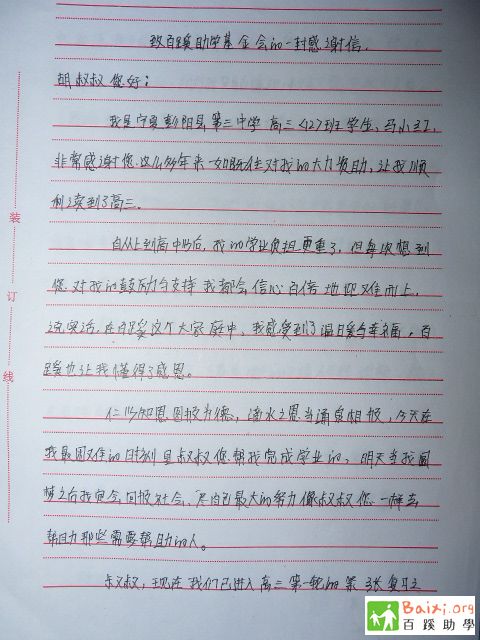 致百蹊助学基金会的一封感谢信.
胡叔叔您好:
我是宁夏彭阳县第三中学高三<12>班学生、马小红,
非常感谢您这么多年来一如既往对我的大力资助,让我顺
利读到了高三.
自从上到高中以后,我的学业负担更重了,但每次想到
您对我的鼓励与支持我都会信心百倍地迎难而上,
说实话,在百蹊这个大家庭中,我感受到了温暖与幸福,百
蹊也让我懂得了感恩。
仁以知恩图报为德,滴水之恩当涌泉相报,今天在
我最困难的时刻是叔叔您帮我完成学业的,明天当我圆
梦之后我也会回报社会,尽自己最大的努力像叔叔您一样去
帮助那些需要帮助的人。
叔叔,现在我们已进入高三第一轮的紧张复习之
装
订
线
Baixi.org
百蹊助學